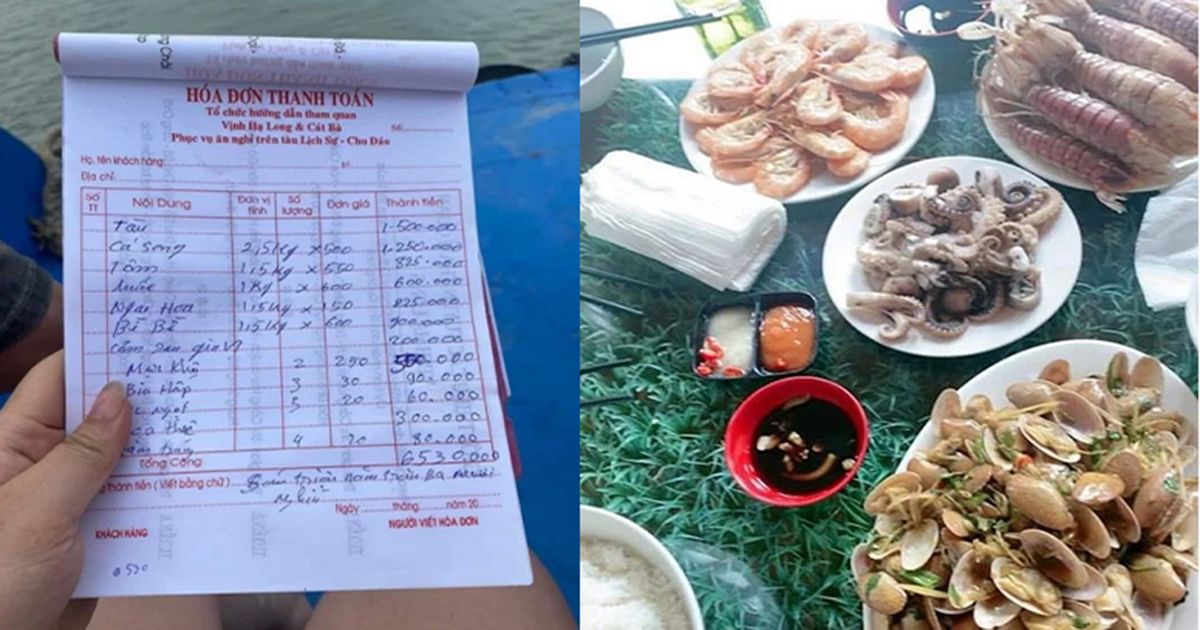 HÓA ĐƠN THANH TOÁN
Tổ chức hướng dẫn tham quan
Vịnh Hạ Long & Cát Bà
Số:
Phục vụ ăn nghỉ trên tàu Lịch Sự - Chu Đáo
Họ, tên khách hàng:
Địa chỉ:
Số TT Nội Dung Đơn vị tính Số lượng Đơn giá Thành tiền
Tàu 1.500.000
Cá Song 2,5kg x500 1.250.000
Tôm 1,5kg x 550 825.000
1kg x 600 600.000
Ngao Hoa 1,5kg x 150 225.000
Bề Bề 1,5kg x 600 900.000
Cơm rau gia vị 200.000
Mực khô 2 250 500.000
Bia Hấp 3 30 90.000
ngọt 3 20 60.000
300.000
4 20 80.000
Tổng Cộng 6530.000
thành tiền (Viết bằng chữ)
Ngày tháng năm 20
KHÁCH HÀNG NGƯỜI VIẾT HÓA ĐƠN